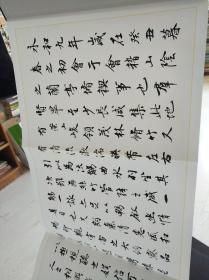 永和九年歲在癸丑暮
春之初會于會稽山陰
之蘭亭脩稧事也群
賢畢至少長咸集此地
有崇山峻領茂林脩竹又
有清流激湍映帶左右
引以為流觴曲水列坐其
次雖無絲竹管弦之盛一
觴一詠亦足以暢敘幽情
是日也